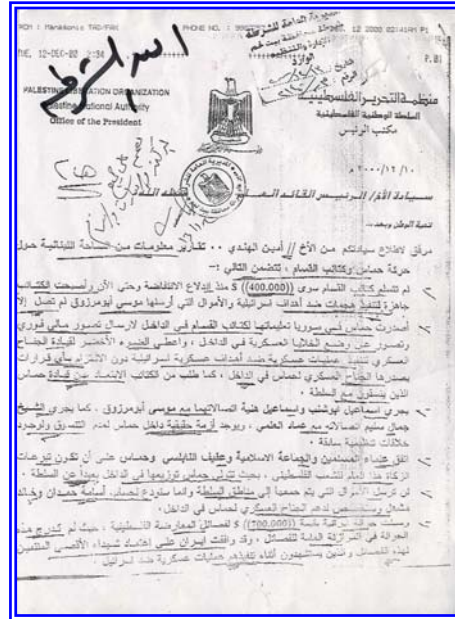 TUE, 12-DEC-00 2:34
P.01
PALESTINE LIBERATION ORGANIZATION
Palestinian National Authority
Office of the President
منظمة التحرير الفلسطينية
السلطة الوطنية الفلسطينية
مكتب الرئيس
٢٠٠٠/١٢/١٠ م
سيادة الأخ/ الرئيس القائد العام حفظه الله
تحية الوطن وبعد...
مرفق لاطلاع سيادتكم من الأخ // أمين الهندي .. تقارير معلومات من الساحة اللبنانية حول
حركة حماس وكتائب القسام ، تتضمن التالي :-
لم تتسلم كتائب القسام سوى ((400,000)) $ منذ اندلاع الانتفاضة وحتى الآن وأصبحت الكتائب
جاهزة لتنفيذ هجمات ضد أهداف اسرائيلية والأموال التي أرسلها موسى أبومرزوق لم تصل إلا
أصدرت حماس في سوريا تعليماتها لكتائب القسام في الداخل لارسال تصور مالي فوري
وتصور عن وضع الخلايا العسكرية في الداخل ، واعطي الضوء الأخضر لقيادة الجناح
العسكري لتنفيذ عمليات عسكرية ضد أهداف عسكرية اسرائيلية دون الالتزام بأي قرارات
يصدرها الجناح العسكري لحماس في الداخل ، كما طلب من الكتائب الابتعاد عن قيادة حماس
الذين ينسقون مع السلطة .
يجري اسماعيل ابوشنب واسماعيل هنية اتصالاتهما مع موسى أبومرزوق ، كما يجري الشيخ
جمال سليم اتصالاته مع عماد العلمي ، ويوجد أزمة حقيقية داخل حماس لعدم التنسيق ولوجود
خلافات تنظيمية سابقة .
اتفق علماء المسلمين والجماعة الاسلامية وعفيف النابلسي وحماس على أن تكون تبرعات
الزكاة هذا العام للشعب الفلسطيني ، بحيث تتولى حماس توزيعها في الداخل بعيداً عن السلطة .
لن ترسل الأموال التي يتم جمعها إلى مناطق السلطة وانما ستودع لحساب أسامة حمدان وخالد
مشعل وستخصص لدعم الجناح العسكري لحماس في الداخل .
وصلت حوالة ايرانية بقيمة ((700,000)) $ لفصائل المعارضة الفلسطينية ، حيث لم تدرج هذه
الحوالة في الموازنة العامة للفصائل ، وقد وافقت ايران على اعتماد شهداء الأقصى المنتمين
لهذه الفصائل والذين يستشهدون أثناء تنفيذهم عمليات عسكرية ضد اسرائيل